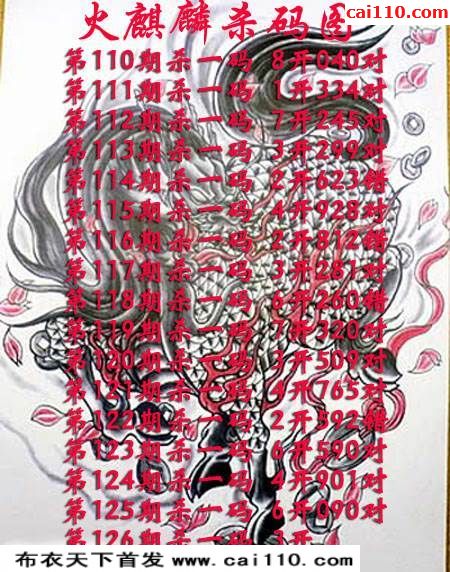 cai110.com
火麒麟杀码图
第110期杀一码 8开040对
第111期杀一码 1开334对
第112期杀一码 7开245对
第113期杀一码 3开299对
第114期杀一码 2开623错
第115期杀一码 4开928对
第116期杀一码 2开812错
第117期杀一码 3开281对
第118期杀一码 6开260错
第119期杀一码 7开320对
第120期杀一码 3开509对
第121期杀一码 4开765对
第122期杀一码 2开592错
第123期杀一码 6开590对
第124期杀一码 4开901对
第125期杀一码 6开090对
第126期杀一码 1开
布衣天下首发 www.cai110.com